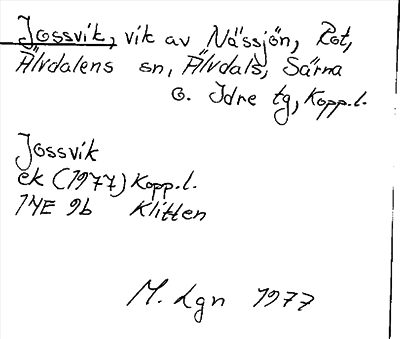 Jossvik, vik av Nässjön, Rot,
Älvdalens sn, Älvdals, Särna
o. Idre tg, Kopp.l.
Jossvik
ek (1977) Kopp.l.
14E 9b Klitten
M. Lgn 1977